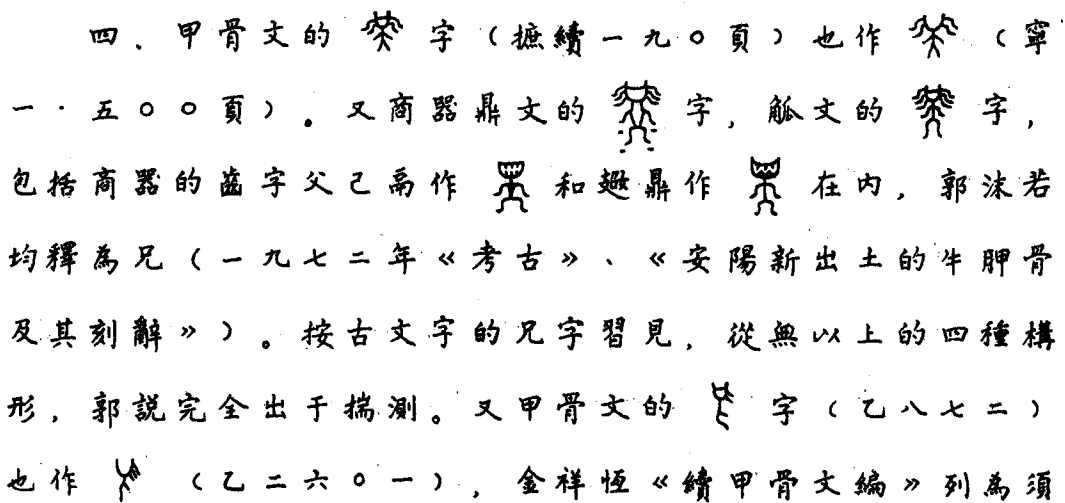 四．甲骨文的字（摭續一九〇頁）也作（寧
一·五〇〇頁）。又商器鼎文的字，觚文的字，
包括商器的齒字父己鬲作和趨鼎作在内，郭沫若
均釋為兄（一九七二年《考古》、《安陽新出土的牛胛骨
及其刻辭》）。按古文字的兄字習見，從無以上的四種構
形，郭説完全出于揣測。又甲骨文的字（乙八七二）
也作（乙二六〇一），金祥恆《續甲骨文編》列為須